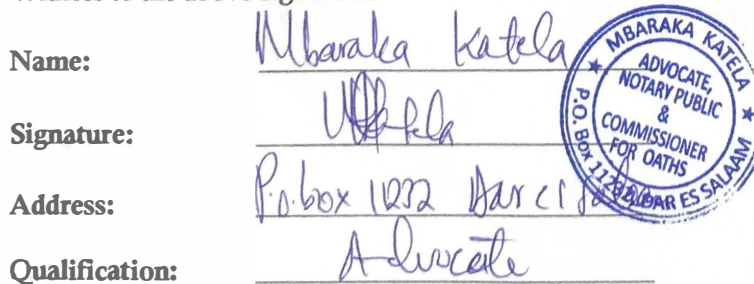 Name: Mbaraka Katela
Signature:
Address: P.o.box 11232 Dar es Salaam
Qualification: Advocate
MBARAKA KATELA
ADVOCATE,
NOTARY PUBLIC
&
COMMISSIONER
FOR OATHS
P.O. Box DAR ES SALAAM